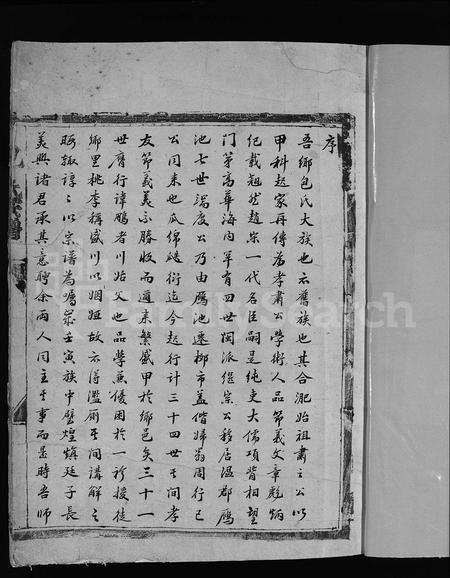 序
吾鄉包氏大族也亦舊族也其合淝始祖肅之公以
甲科起家再傳為孝肅公學術人品節義文章彪炳
紀載翹然趙宗一代名臣嗣是純吏大儒項背相望
門第高華海內罕有四世閔派從宗公移居溫郡鴈
池七世瑞度公乃由鴈池遷柳市蓋偕婦翁周行己
公同來也瓜綿瓞衍迄今起行計三十四世其間孝
友節義美不勝收而邇來繁盛甲于鄉邑矣三十一
世膺行諱鵬者川始父也品學兼優困於一衿授徒
鄉里桃李稱盛川以姻婭故亦得濫廁其間講解之
暇輒諄諄以宗譜為囑歲壬寅族中壁煌熾廷子長
美興諸君承其意聘余兩人同主其事而是時吾師
FamilySearch